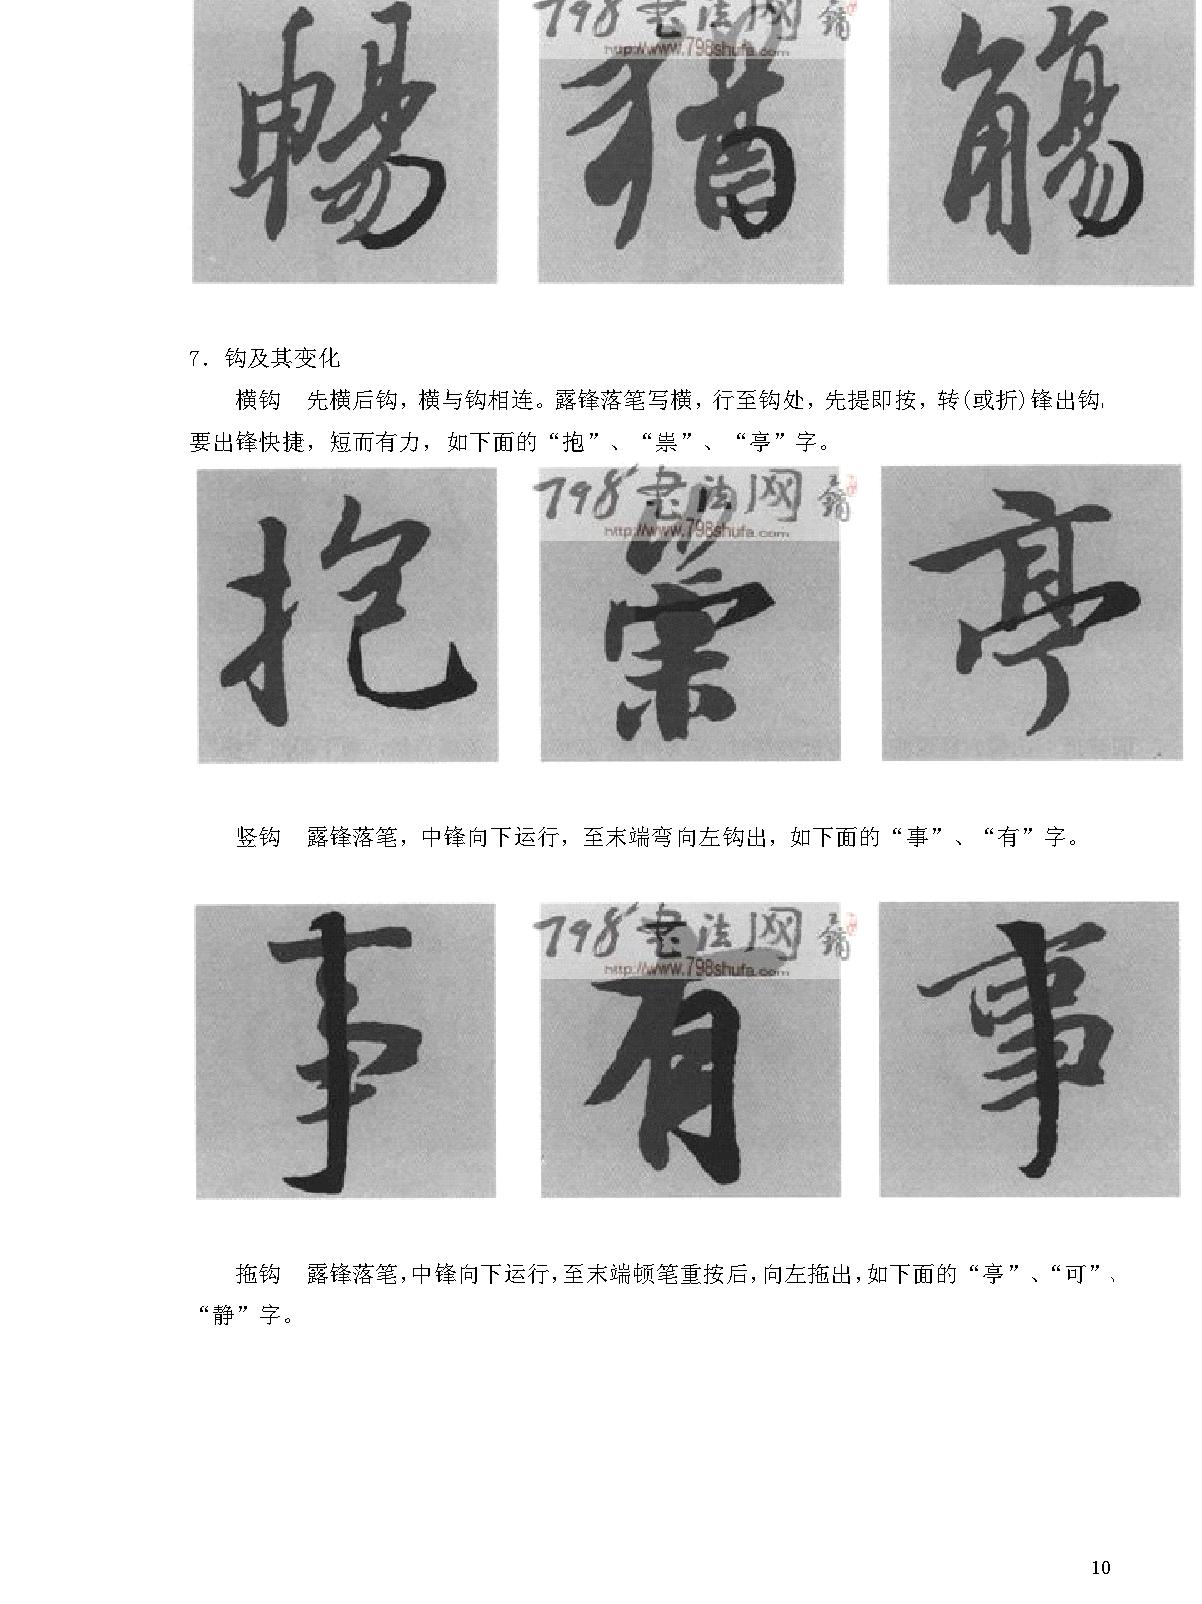 暢 猶 觴
798书法网
http://www.798shufa.com
7．钩及其变化
横钩　先横后钩，横与钩相连。露锋落笔写横，行至钩处，先提即按，转(或折)锋出钩，
要出锋快捷，短而有力，如下面的“抱”、“祟”、“亭”字。
798书法网
http://www.798shufa.com
抱 亭
竖钩　露锋落笔，中锋向下运行，至末端弯向左钩出，如下面的“事”、“有”字。
798书法网
http://www.798shufa.com
事 有 事
拖钩　露锋落笔，中锋向下运行，至末端顿笔重按后，向左拖出，如下面的“亭”、“可”、
“静”字。
10